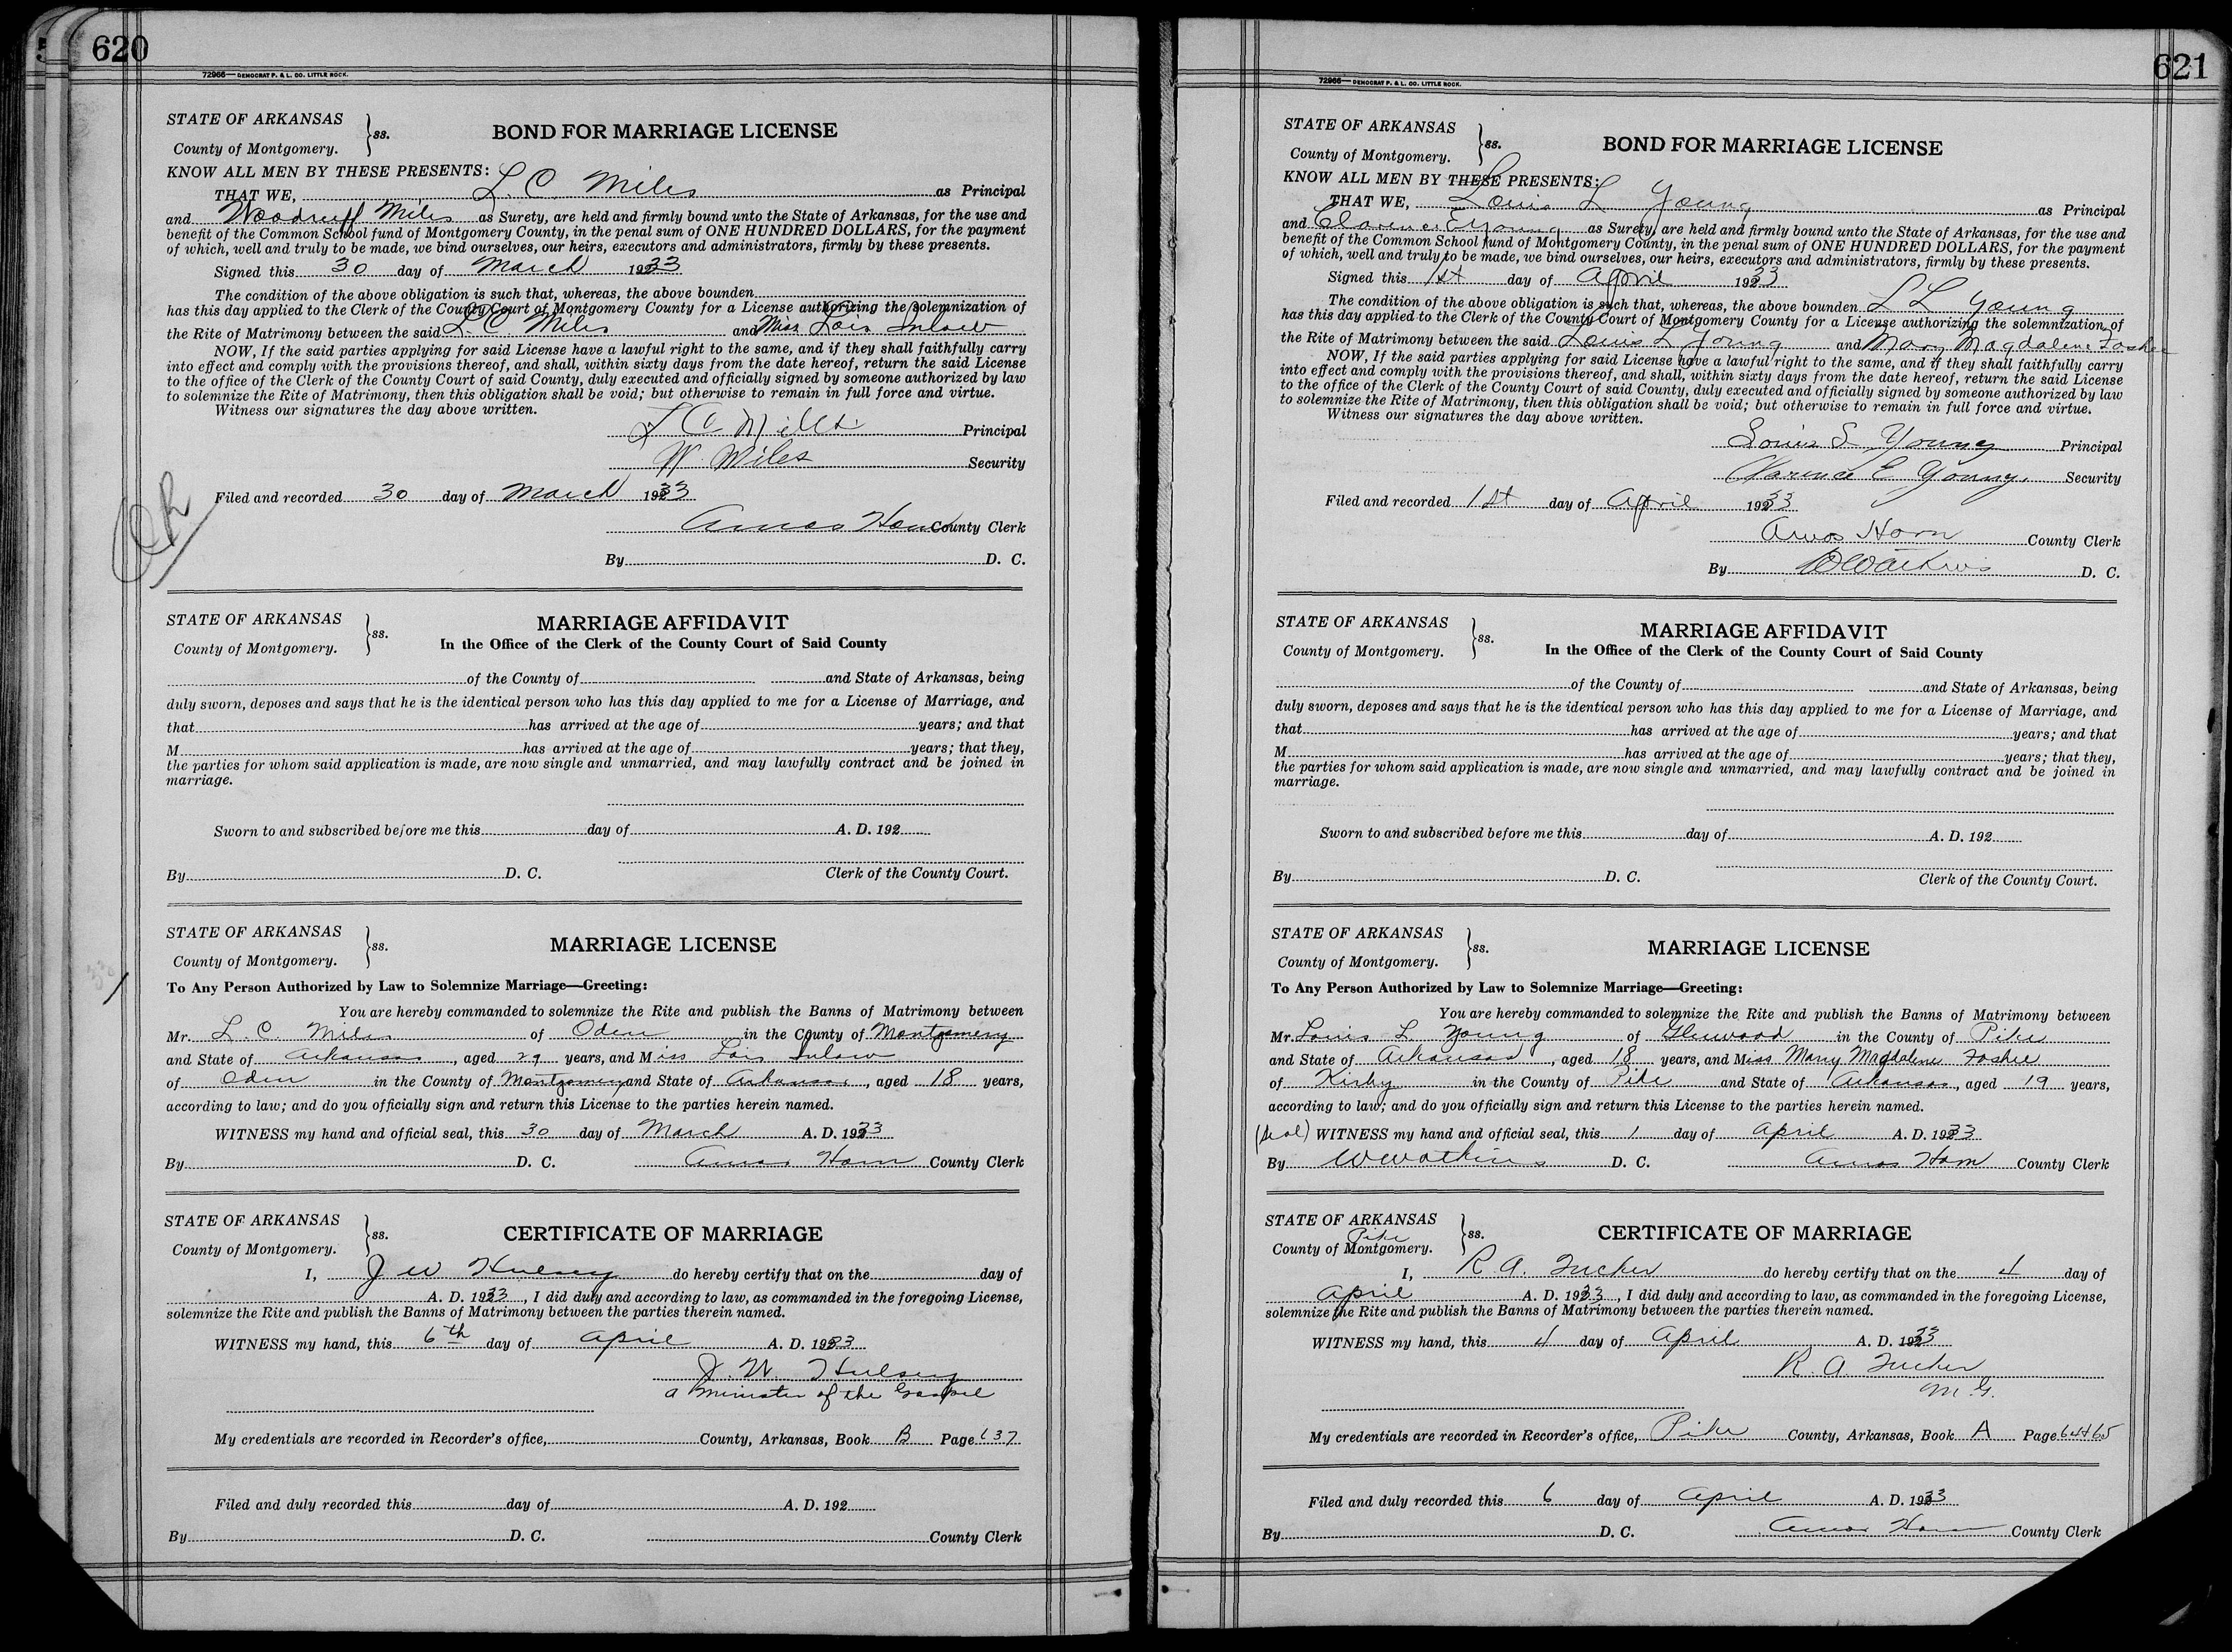 620
72966— DEMOCRAT P. & L. CO. LITTLE ROCK.
STATE OF ARKANSAS
County of Montgomery. }ss.
BOND FOR MARRIAGE LICENSE
KNOW ALL MEN BY THESE PRESENTS:
THAT WE, L. C. Miles as Principal
and Woodruff Miles as Surety, are held and firmly bound unto the State of Arkansas, for the use and
benefit of the Common School fund of Montgomery County, in the penal sum of ONE HUNDRED DOLLARS, for the payment
of which, well and truly to be made, we bind ourselves, our heirs, executors and administrators, firmly by these presents.
Signed this 30 day of March 1933
The condition of the above obligation is such that, whereas, the above bounden
has this day applied to the Clerk of the County Court of Montgomery County for a License authorizing the solemnization of
the Rite of Matrimony between the said L. C. Miles and Miss Lois Inlow
NOW, If the said parties applying for said License have a lawful right to the same, and if they shall faithfully carry
into effect and comply with the provisions thereof, and shall, within sixty days from the date hereof, return the said License
to the office of the Clerk of the County Court of said County, duly executed and officially signed by someone authorized by law
to solemnize the Rite of Matrimony, then this obligation shall be void; but otherwise to remain in full force and virtue.
Witness our signatures the day above written.
L C Miles Principal
W. Miles Security
Filed and recorded 30 day of March 1933
Amos Horn County Clerk
By D. C.
STATE OF ARKANSAS
County of Montgomery. }ss.
MARRIAGE AFFIDAVIT
In the Office of the Clerk of the County Court of Said County
of the County of and State of Arkansas, being
duly sworn, deposes and says that he is the identical person who has this day applied to me for a License of Marriage, and
that has arrived at the age of years; and that
M has arrived at the age of years; that they,
the parties for whom said application is made, are now single and unmarried, and may lawfully contract and be joined in
marriage.
Sworn to and subscribed before me this day of A. D. 192
By D. C. Clerk of the County Court.
STATE OF ARKANSAS
County of Montgomery. }ss.
MARRIAGE LICENSE
To Any Person Authorized by Law to Solemnize Marriage—Greeting:
You are hereby commanded to solemnize the Rite and publish the Banns of Matrimony between
Mr. L. C. Miles of Oden in the County of Montgomery
and State of Arkansas, aged 29 years, and Miss Lois Inlow
of Oden in the County of Montgomery and State of Arkansas, aged 18 years,
according to law; and do you officially sign and return this License to the parties herein named.
WITNESS my hand and official seal, this 30 day of March A. D. 1933
By D. C. Amos Horn County Clerk
STATE OF ARKANSAS
County of Montgomery. }ss.
CERTIFICATE OF MARRIAGE
I, J W Hulsey do hereby certify that on the day of
A. D. 1933, I did duly and according to law, as commanded in the foregoing License,
solemnize the Rite and publish the Banns of Matrimony between the parties therein named.
WITNESS my hand, this 6th day of April A. D. 1933
J. W. Hulsey
a minister of the Gospel
My credentials are recorded in Recorder's office, County, Arkansas, Book B Page 137
Filed and duly recorded this day of A. D. 192
By D. C. County Clerk
621
72966— DEMOCRAT P. & L. CO. LITTLE ROCK.
STATE OF ARKANSAS
County of Montgomery. }ss.
BOND FOR MARRIAGE LICENSE
KNOW ALL MEN BY THESE PRESENTS:
THAT WE, Louis L Young as Principal
and Clarence E Young as Surety, are held and firmly bound unto the State of Arkansas, for the use and
benefit of the Common School fund of Montgomery County, in the penal sum of ONE HUNDRED DOLLARS, for the payment
of which, well and truly to be made, we bind ourselves, our heirs, executors and administrators, firmly by these presents.
Signed this 1st day of April 1933
The condition of the above obligation is such that, whereas, the above bounden L L Young
has this day applied to the Clerk of the County Court of Montgomery County for a License authorizing the solemnization of
the Rite of Matrimony between the said Louis L Young and Mary Magdalene Foshee
NOW, If the said parties applying for said License have a lawful right to the same, and if they shall faithfully carry
into effect and comply with the provisions thereof, and shall, within sixty days from the date hereof, return the said License
to the office of the Clerk of the County Court of said County, duly executed and officially signed by someone authorized by law
to solemnize the Rite of Matrimony, then this obligation shall be void; but otherwise to remain in full force and virtue.
Witness our signatures the day above written.
Louis L Young Principal
Clarence E Young. Security
Filed and recorded 1st day of April 1933
Amos Horn County Clerk
By W Watkins D. C.
STATE OF ARKANSAS
County of Montgomery. }ss.
MARRIAGE AFFIDAVIT
In the Office of the Clerk of the County Court of Said County
of the County of and State of Arkansas, being
duly sworn, deposes and says that he is the identical person who has this day applied to me for a License of Marriage, and
that has arrived at the age of years; and that
M has arrived at the age of years; that they,
the parties for whom said application is made, are now single and unmarried, and may lawfully contract and be joined in
marriage.
Sworn to and subscribed before me this day of A. D. 192
By D. C. Clerk of the County Court.
STATE OF ARKANSAS
County of Montgomery. }ss.
MARRIAGE LICENSE
To Any Person Authorized by Law to Solemnize Marriage—Greeting:
You are hereby commanded to solemnize the Rite and publish the Banns of Matrimony between
Mr. Louis L Young of Glenwood in the County of Pike
and State of Arkansas, aged 18 years, and Miss Mary Magdalene Foshee
of Kirby in the County of Pike and State of Arkansas, aged 19 years,
according to law; and do you officially sign and return this License to the parties herein named.
(seal) WITNESS my hand and official seal, this 1 day of April A. D. 1933
By W Watkins D. C. Amos Horn County Clerk
STATE OF ARKANSAS
Pike
County of Montgomery. }ss.
CERTIFICATE OF MARRIAGE
I, R. A. Tucker do hereby certify that on the 4 day of
April A. D. 1933, I did duly and according to law, as commanded in the foregoing License,
solemnize the Rite and publish the Banns of Matrimony between the parties therein named.
WITNESS my hand, this 4 day of April A. D. 1933
R. A. Tucker
M. G.
My credentials are recorded in Recorder's office, Pike County, Arkansas, Book A Page 64+65
Filed and duly recorded this 6 day of April A. D. 1933
By D. C. Amos Horn County Clerk